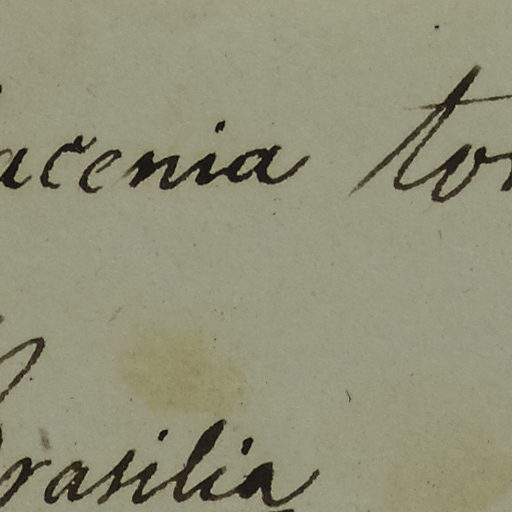 acenia tor
Brasilia